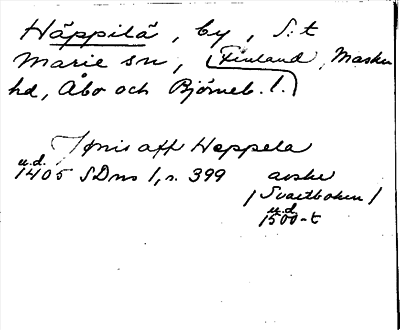 Häppilä, by, S:t
Marie sn, (Finland, Masku
hd, Åbo och Björneb. l.)
Jönis aff Heppela
u.d.
1405 SDns 1, s. 399 avskr
(Svartboken)
u.d
1500-t